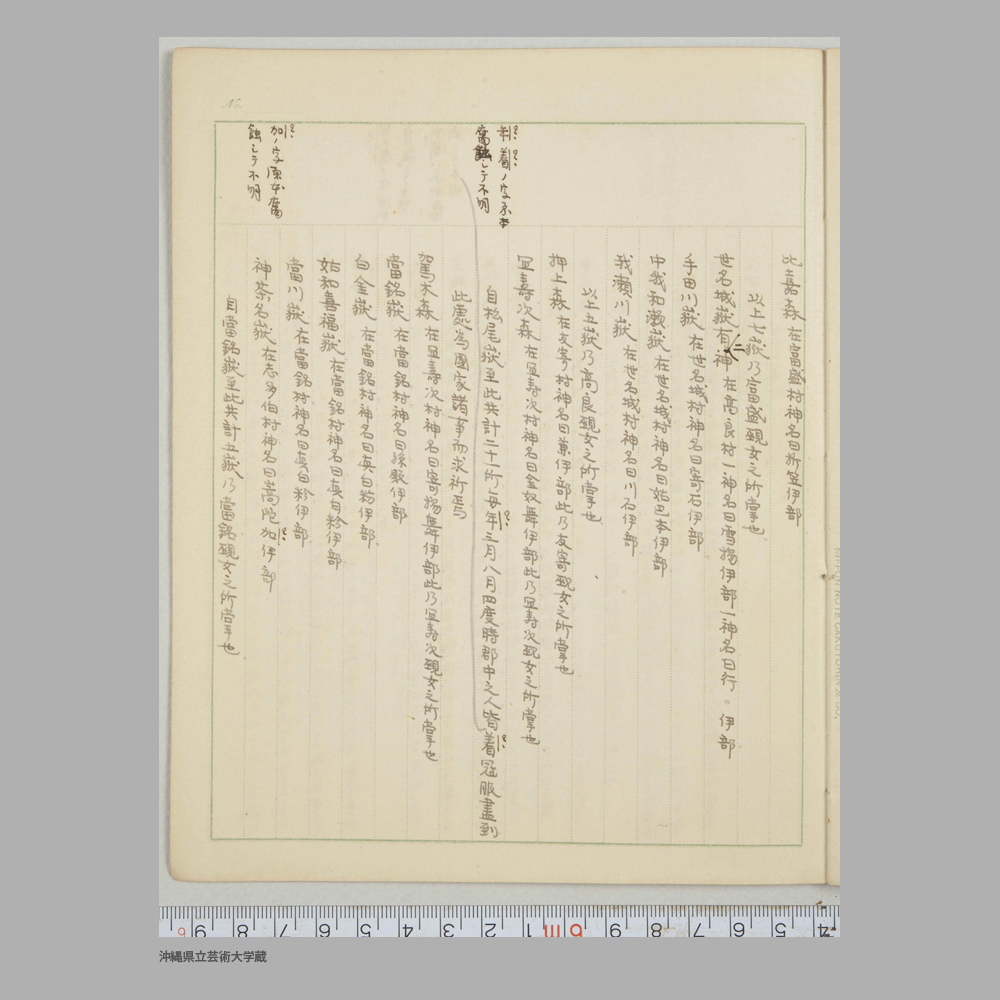 年、着ノ字原本
腐蝕シテ不明
加ノ字原本腐
蝕シテ不明
比嘉森 在富盛村神名曰折笠伊部
以上七嶽乃富盛覡女之所掌也
世名城嶽有二神 在高良村一神名曰雪揚伊部一神名曰行。伊部
手田川嶽 在世名城村神名曰寄石伊部
中我和瀬嶽 在世名城村神名曰姑巴本伊部
我瀬川嶽 在世名城村神名曰川石伊部
以上五嶽乃高良覡女之所掌也
押上森 在友寄村神名曰兼伊部此乃友寄覡女之所掌也
宜寿次森 在宜寿次村神名曰金奴舞伊部此乃宜寿次覡女之所掌也
自松尾嶽至此共計二十一所毎年三月八月四度時郡中之人皆着冠服盡到
此處為國家諸事而求祈焉
駕大森 在宜寿次村神名曰寄揚舞伊部此乃宜寿次覡女之所掌也
當銘嶽 在當銘村神名曰孫歌伊部
白金嶽 在當銘村神名曰真白粉伊部
始和喜福嶽 在當銘村神名曰真白粉伊部
當川嶽 在當銘村神名曰真白粉伊部
神茶名嶽 在志多伯村神名曰嵩陀加伊部
自當銘嶽至此共計五嶽乃當銘覡女之所掌也
沖縄県立芸術大学蔵